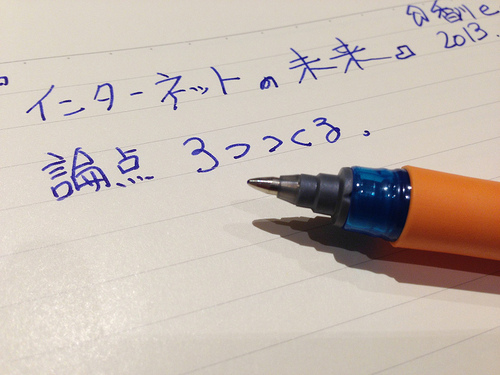 2013.
インターネットの未来の
論点 3つつくる.